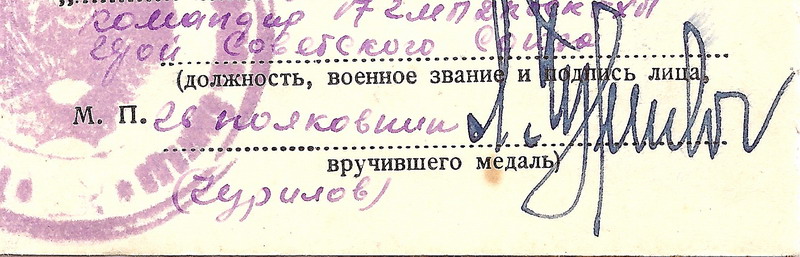 командир 172 мп
Герой Советского Союза
(должность, военное звание и подпись лица,
М. П. гв полковник
вручившего медаль)
(Чурилов)